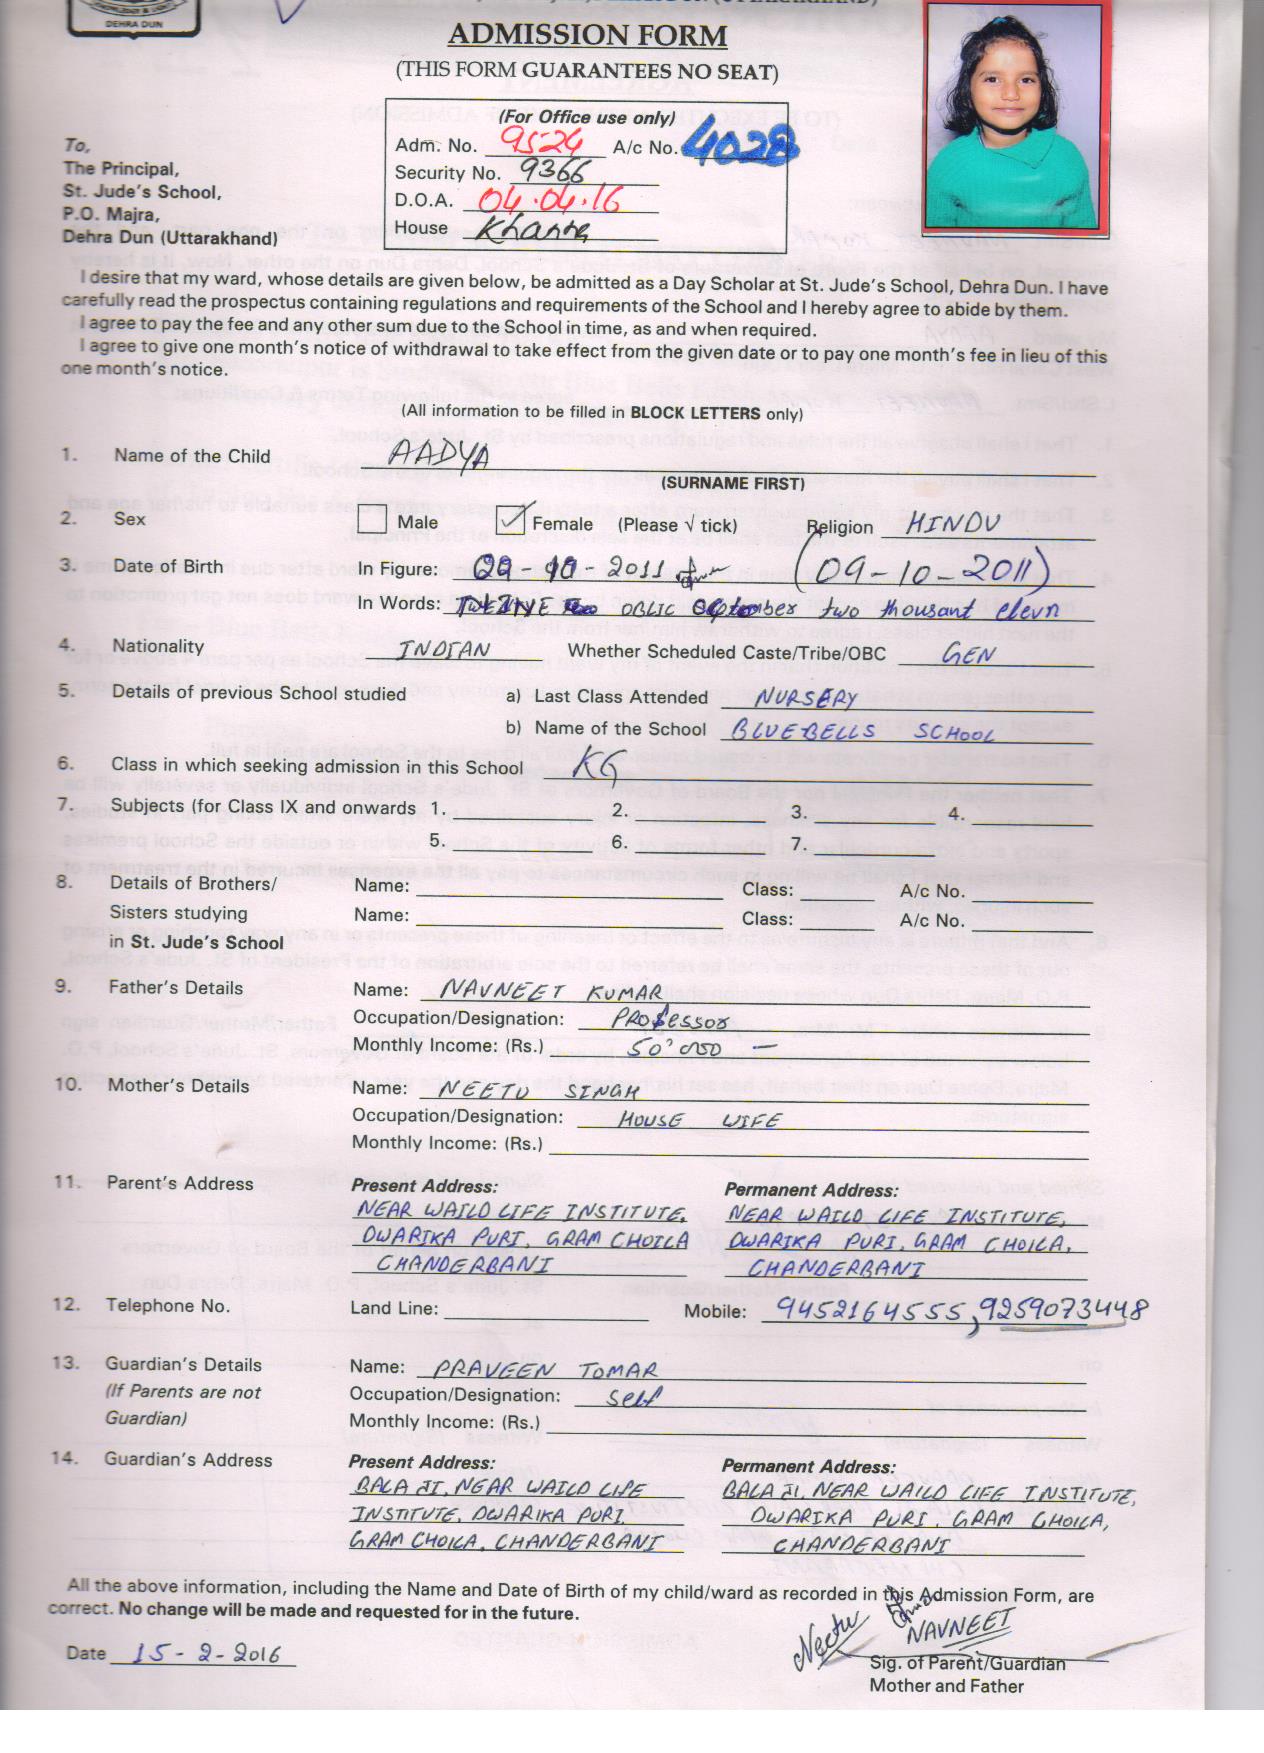 DEHRA DUN
ADMISSION FORM
(THIS FORM GUARANTEES NO SEAT)
(For Office use only)
Adm. No. 9524 A/c No. 4028
Security No. 9366
D.O.A. 04.04.16
House Khanna
To,
The Principal,
St. Jude's School,
P.O. Majra,
Dehra Dun (Uttarakhand)
I desire that my ward, whose details are given below, be admitted as a Day Scholar at St. Jude's School, Dehra Dun. I have
carefully read the prospectus containing regulations and requirements of the School and I hereby agree to abide by them.
I agree to pay the fee and any other sum due to the School in time, as and when required.
I agree to give one month's notice of withdrawal to take effect from the given date or to pay one month's fee in lieu of this
one month's notice.
(All information to be filled in BLOCK LETTERS only)
1. Name of the Child AADYA
(SURNAME FIRST)
2. Sex Male Female (Please √ tick) Religion HINDU
3. Date of Birth In Figure: 09-10-2011 (09-10-2011)
In Words: two thousant elevn
4. Nationality INDIAN Whether Scheduled Caste/Tribe/OBC GEN
5. Details of previous School studied a) Last Class Attended NURSERY
b) Name of the School BLUEBELLS SCHOOL
6. Class in which seeking admission in this School KG
7. Subjects (for Class IX and onwards 1. 2. 3. 4.
5. 6. 7.
8. Details of Brothers/ Name: Class: A/c No.
Sisters studying Name: Class: A/c No.
in St. Jude's School
9. Father's Details Name: NAVNEET KUMAR
Occupation/Designation: PROfessor
Monthly Income: (Rs.) 50'000 —
10. Mother's Details Name: NEETU SINGH
Occupation/Designation: HOUSE WIFE
Monthly Income: (Rs.)
11. Parent's Address Present Address: Permanent Address:
NEAR WAILD LIFE INSTITUTE, NEAR WAILD LIFE INSTITUTE,
DWARIKA PURI, GRAM CHOILA DWARIKA PURI, GRAM CHOILA,
CHANDERBANI CHANDERBANI
12. Telephone No. Land Line: Mobile: 9452164555, 9259073448
13. Guardian's Details Name: PRAVEEN TOMAR
(If Parents are not Occupation/Designation: Self
Guardian) Monthly Income: (Rs.)
14. Guardian's Address Present Address: Permanent Address:
BALA JI, NEAR WAILD LIFE BALA JI, NEAR WAILD LIFE INSTITUTE,
INSTITUTE, DWARIKA PURI, DWARIKA PURI, GRAM CHOILA,
GRAM CHOILA, CHANDERBANI CHANDERBANI
All the above information, including the Name and Date of Birth of my child/ward as recorded in this Admission Form, are
correct. No change will be made and requested for in the future.
Neetu NAVNEET
Date 15-2-2016
Sig. of Parent/Guardian
Mother and Father